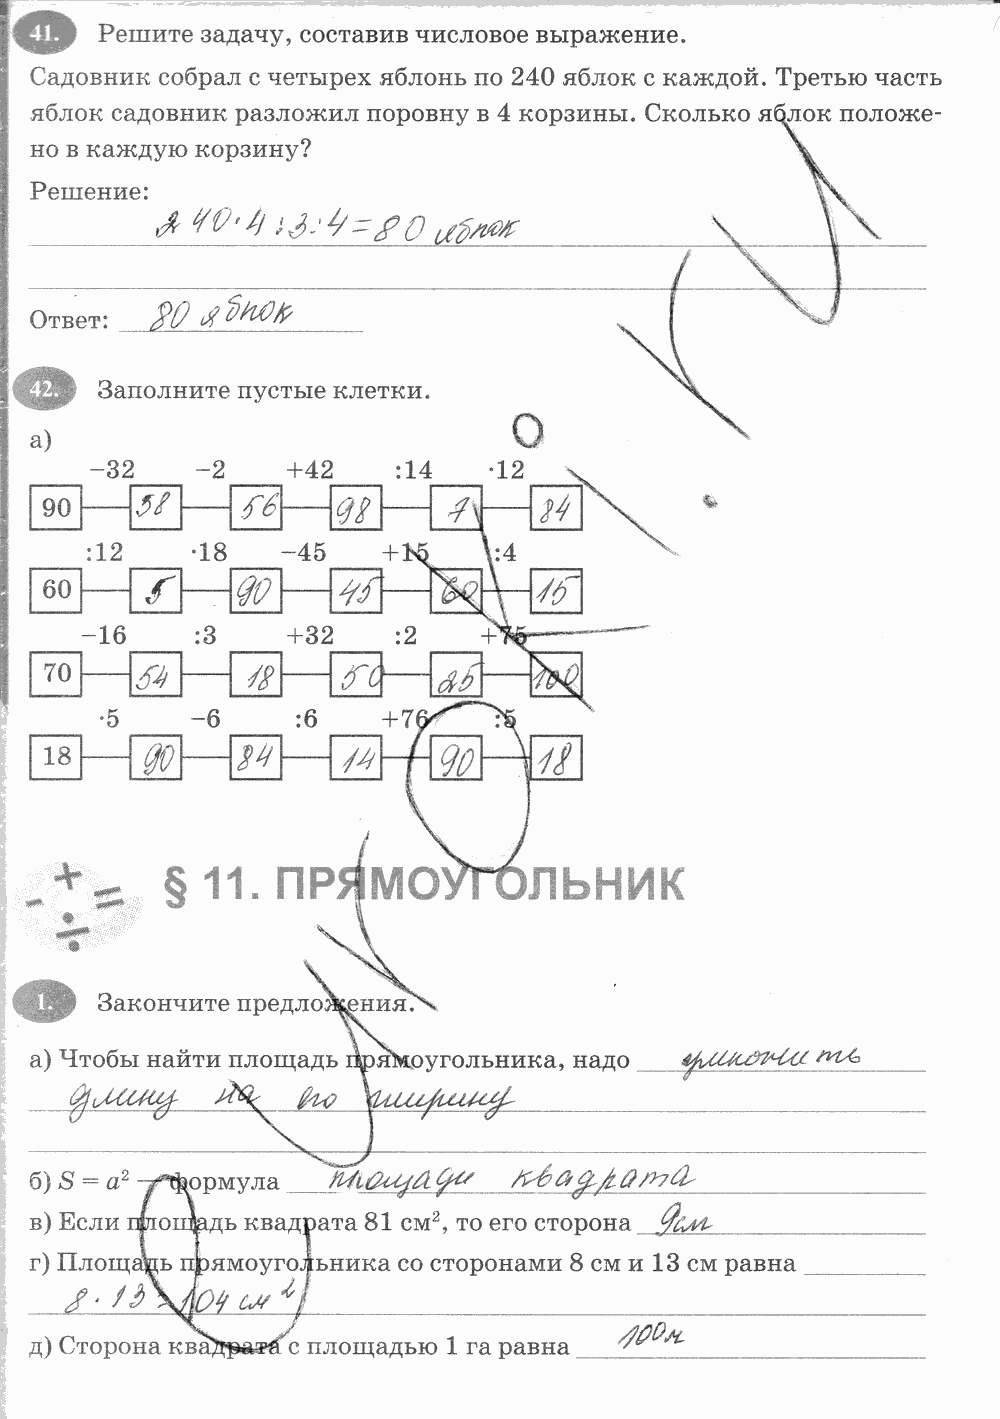 41. Решите задачу, составив числовое выражение.
Садовник собрал с четырех яблонь по 240 яблок с каждой. Третью часть
яблок садовник разложил поровну в 4 корзины. Сколько яблок положе-
но в каждую корзину?
Решение:
240·4:3:4=80 яблок
Ответ: 80 яблок
42. Заполните пустые клетки.
а)
−32 −2 +42 :14 ·12
90 58 56 98 7 84
:12 ·18 −45 +15 :4
60 5 90 45 60 15
−16 :3 +32 :2 +75
70 54 18 50 25 100
·5 −6 :6 +76 :5
18 90 84 14 90 18
§ 11. ПРЯМОУГОЛЬНИК
1. Закончите предложения.
а) Чтобы найти площадь прямоугольника, надо умножить
длину на его ширину
б) S = a² — формула площади квадрата
в) Если площадь квадрата 81 см², то его сторона 9см
г) Площадь прямоугольника со сторонами 8 см и 13 см равна
8·13=104 см²
д) Сторона квадрата с площадью 1 га равна 100м